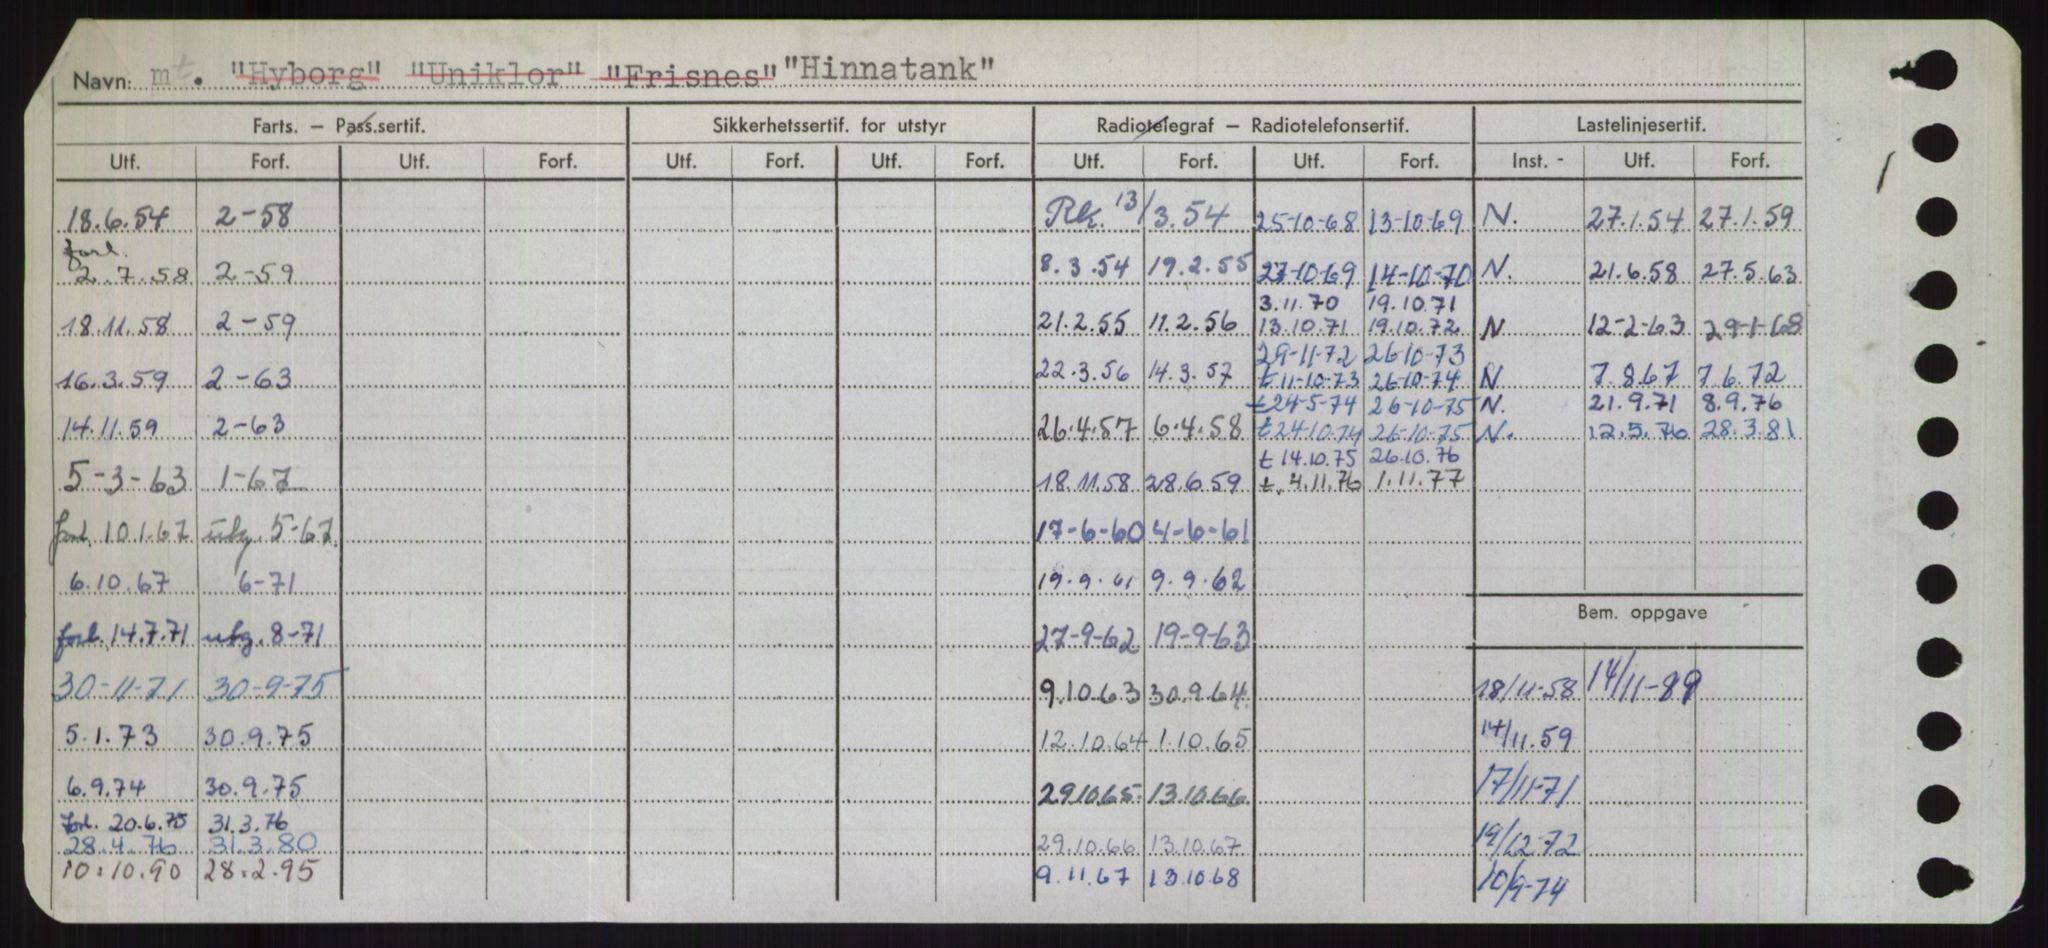 Navn: mt. "Hyborg" "Uniklor" "Frisnes" "Hinnatank"
Farts. – Pass.sertif. Sikkerhetssertif. for utstyr Radiotelegraf – Radiotelefonsertif. Lastelinjesertif.
Utf. Forf. Utf. Forf. Utf. Forf. Utf. Forf. Utf. Forf. Utf. Forf. Inst. - Utf. Forf.
18.6.54 2-58 Rk. 13/3.54 25-10-68 13-10-69 N. 27.1.54 27.1.59
forl.
2.7.58 2-59 8.3.54 19.2.55 27-10-69 14-10-70 N. 21.6.58 27.5.63
3.11.70 19.10.71
18.11.58 2-59 21.2.55 11.2.56 13.10.71 19.10.72 N 12-2-63 29-1-68
29-11-72 26-10-73
16.3.59 2-63 22.3.56 14.3.57 t 11-10-73 26-10-74 N 7.8.67 7.6.72
t 24-5-74 26-10-75 N. 21.9.71 8.9.76
14.11.59 2-63 26.4.57 6.4.58 t 24-10-74 26-10-75 N. 12.5.76 28.3.81
t 14.10.75 26.10.76
5-3-63 1-67 18.11.58 28.6.59 t. 4.11.76 1.11.77
forl. 10.1.67 utg. 5-67. 17-6-60 4-6-61
6.10.67 6-71 19.9.61 9.9.62
Bem. oppgave
forl. 14.7.71 utg. 8-71 27-9-62 19-9-63
30-11-71 30-9-75 9.10.63 30.9.64. 18/11-58 14/11-89
5.1.73 30.9.75 12.10.64 1.10.65 14/11.59
6.9.74 30.9.75 29.10.65. 13.10.66. 17/11-71
forl. 20.6.75 31.3.76
28.4.76 31.3.80 29.10.66 13.10.67 19/12-72
10.10.90 28.2.95 9.11.67 13.10.68 10/9-74